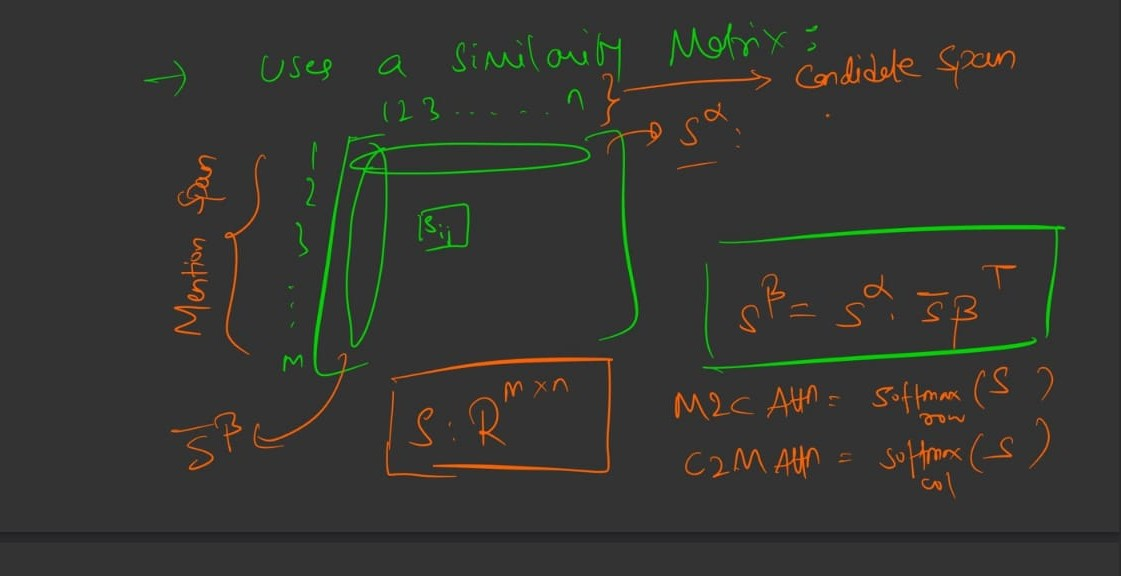 → Uses a Similarity Matrix :
Candidate Span
1 2 3 . . . . . . n
S^α :
Mention Span
1
2
3
⋮
M
S_ij
S^β = S^α . S̄^β^T
S : R^{m×n}
M2C Attn = softmax_row (S)
C2M Attn = softmax_col (S)
S̄^β